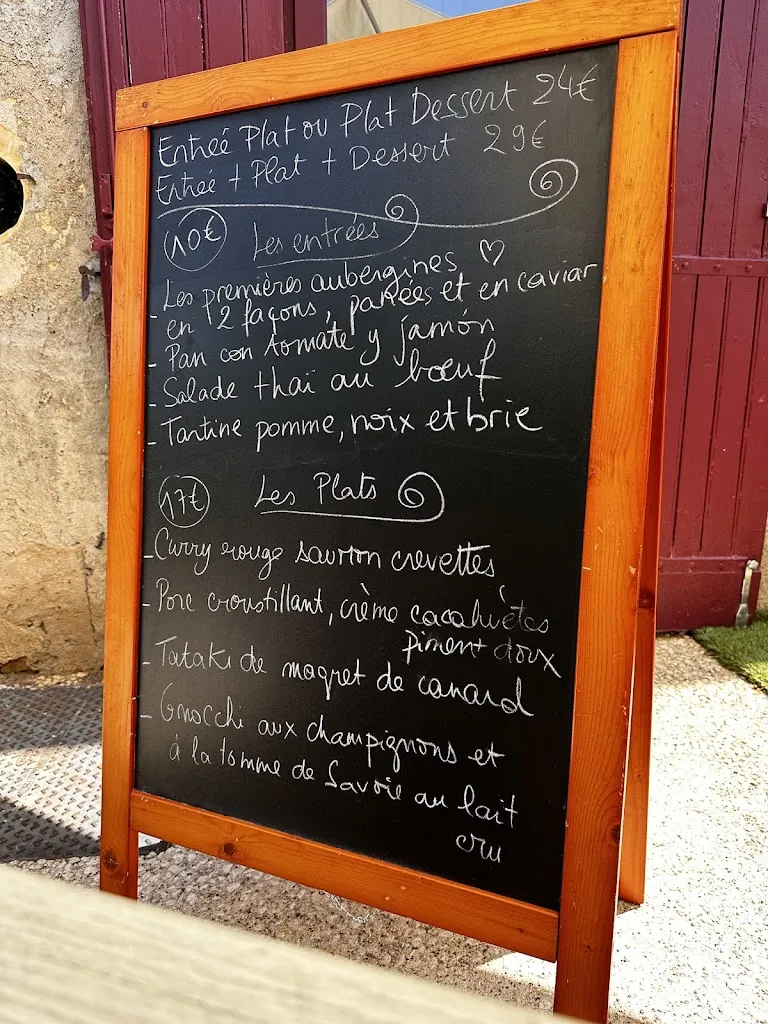 Entreé Plat ou Plat Dessert 24€
Entreé + Plat + Dessert 29€
10€ Les entrées
- Les premières aubergines ♡
en 2 façons, panées et en caviar
- Pan con tomate y jamón
- Salade thaï au bœuf
- Tartine pomme, noix et brie
17€ Les Plats
- Curry rouge saumon crevettes
- Porc croustillant, crème cacahuètes
piment doux
- Tataki de magret de canard
- Gnocchi aux champignons et
à la tomme de Savoie au lait
cru